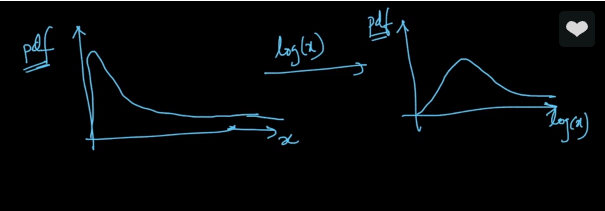 pdf
log(x)
pdf
x
log(x)